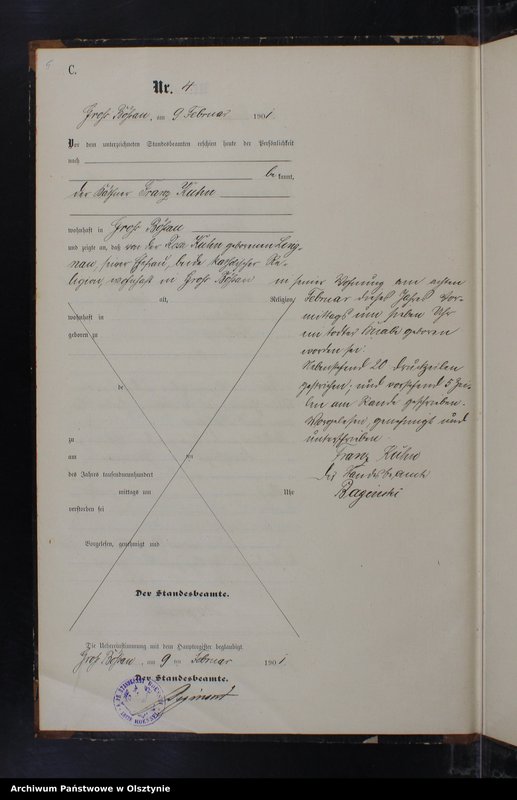 C.
Nr. 4
Groß Bößau, am 9 Februar 1901.
Vor dem unterzeichneten Standesbeamten erschien heute der Persönlichkeit
nach
bekannt,
der Käthner Franz Kuhn
wohnhaft in Groß Bößau
und zeigte an, daß von der Rosa Kuhn geborenen
seiner Ehefrau, beide katholischer Re-
ligion, wohnhaft in Groß Bößau
alt, Religion,
wohnhaft in
geboren zu
de
zu
am ten
des Jahres tausendneunhundert
mittags um Uhr
verstorben sei
Vorgelesen, genehmigt und
in seiner Wohnung am achten
Februar dieses Jahres Vor-
mittags um sieben Uhr
ein todter Knabe geboren
worden sei.
Nebenstehend 20 Druckzeilen
gestrichen, und vorstehend 5 Zei-
len am Rande geschrieben.
Vorgelesen, genehmigt und
unterschrieben
Franz Kuhn
Der Standesbeamte
Der Standesbeamte.
Die Uebereinstimmung mit dem Hauptregister beglaubigt
Groß Bößau, am 9 ten Februar 1901
Der Standesbeamte.
Archiwum Państwowe w Olsztynie